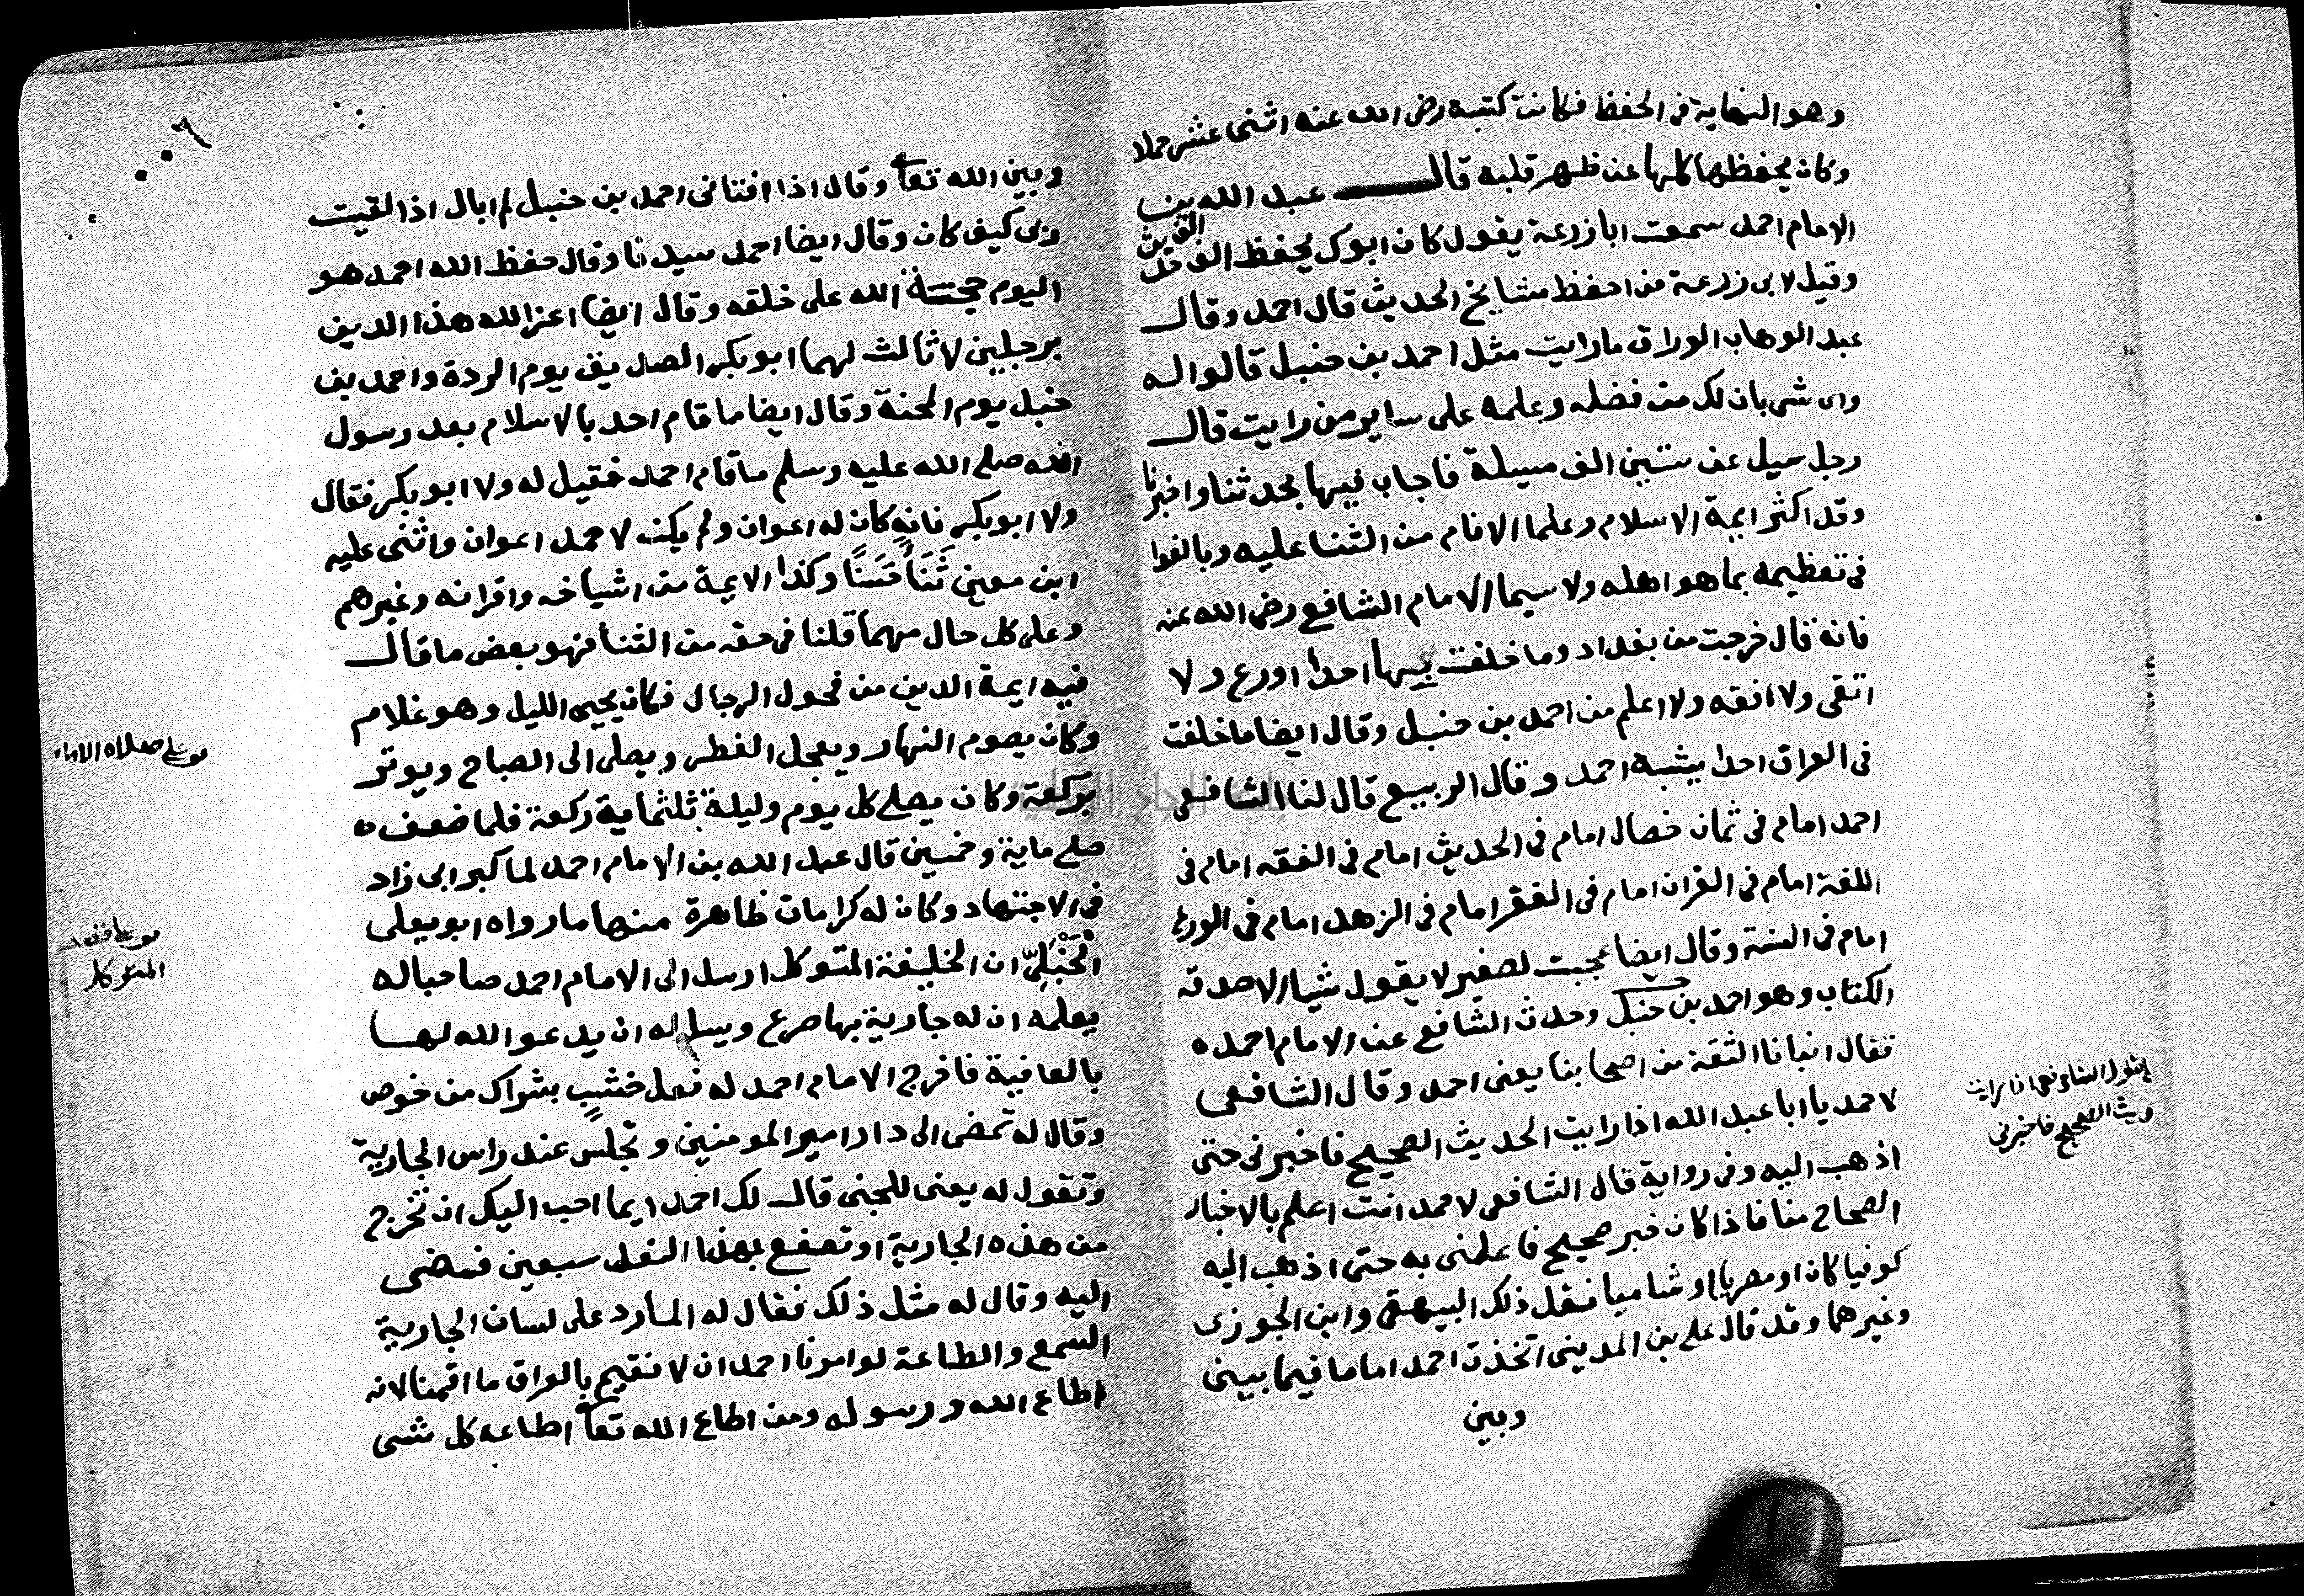 وهو النهاية في الحفظ فكانت كتبه رضي الله عنه اثنى عشر حملا
وكان يحفظها كلها عن ظهر قلبه قال عبد الله بن
الامام احمد سمعت ابا زرعة يقول كان ابوك يحفظ الف الف حديث
وقيل لابي زرعة من احفظ مشايخ الحديث قال احمد وقال
عبد الوهاب الوراق مارايت مثل احمد بن حنبل قالوا له
واى شى بان لك من فضله وعلمه على ساير من رايت قال
رجل سيل عن ستين الف مسيلة فاجاب فيها بحدثنا واخبرنا
وقد اكثر ايمة الاسلام وعلما الانام من الثنا عليه وبالغوا
في تعظيمه بما هو اهله ولا سيما الامام الشافعي رضي الله عنه
فانه قال خرجت من بغداد وما خلفت بها احدا اورع ولا
اتقى ولا افقه ولا اعلم من احمد بن حنبل وقال ايضا ما خلفت
في العراق احدا يشبه احمد وقال الربيع قال لنا الشافعي
احمد امام في ثمان خصال امام في الحديث امام في الفقه امام في
اللغة امام في القران امام في الفقر امام في الزهد امام في الورع
امام في السنة وقال ايضا عجبت لصغير لا يقول شيا الا صدقه
الكتاب وهو احمد بن حنبل وحدث الشافعي عن الامام احمد ه
فقال انبانا الثقة من اصحابنا يعنى احمد وقال الشافعي
لاحمد يا ابا عبد الله اذا رايت الحديث الصحيح فاخبرني حتى
اذهب اليه وفي رواية قال الشافعي لاحمد انت اعلم بالاخبار
الصحاح منا فاذا كان خبر صحيح فاعلمنى به حتى اذهب اليه
كوفيا كان او مصريا او شاميا نقل ذلك البيهقي وابن الجوزى
وغيرهما وقد قال علي بن المديني اتخذت احمد اماما فيما بينى
وبين
الشافعي اذا رايت
الصحيح فاخبرني
وبين الله تعا وقال اذا افتانى احمد بن حنبل لم ابال اذا لقيت
ربى كيف كان وقال ايضا احمد سيدنا وقال حفظ الله احمد هو
اليوم حجة الله على خلقه وقال ايضا اعز الله هذا الدين
برجلين لا ثالث لهما ابو بكر الصديق يوم الردة واحمد بن
حنبل يوم المحنة وقال ايضا ما قام احد بالاسلام بعد رسول
الله صلى الله عليه وسلم ما قام احمد فقيل له ولا ابو بكر فقال
ولا ابو بكر فانه كان له اعوان ولم يكن لاحمد اعوان واثنى عليه
ابن معين ثَنَاً حَسَنًا وكذا الايمة من اشياخه واقرانه وغيرهم
وعلى كل حال مهما قلنا في حقه من الثنا فهو بعض ما قال
فيه ايمة الدين من فحول الرجال فكان يحيى الليل وهو غلام
وكان يصوم النهار ويعجل الفطر ويصلى الى الصباح ويوتر
بركعة وكان يصلي كل يوم وليلة ثلثماية ركعة فلما ضعف ه
صلى ماية وخمسين قال عبد الله بن الامام احمد لما كبر ابى زاد
في الاجتهاد وكان له كرامات ظاهرة منها ما رواه ابو يعلى
الْحَنْبَلِيّ ان الخليفة المتوكل ارسل الى الامام احمد صاحبا له
يعلمه ان له جارية بها صرع ويسله له ان يدعو الله لها
بالعافية فاخرج الامام احمد له نعل خشبٍ بشراك من خوص
وقال له تمضى الى دار امير المومنين وتجلس عند راس الجارية
وتقول له يعنى للجنى قال لك احمد ايما احب اليك ان تخرج
من هذه الجارية او تصفع بهذا النعل سبعين فمضى
اليه وقال له مثل ذلك فقال له المارد على لسان الجارية
السمع والطاعة لو امرنا احمد ان لا نقيم بالعراق ما اقمنا لانه
اطاع الله ورسوله ومن اطاع الله تعا اطاعه كل شى
صلاة الامام
المتوكل